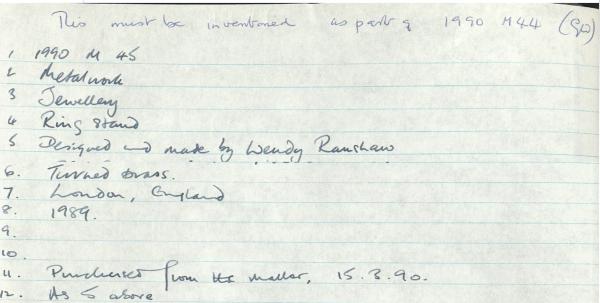 This must be inventoried as part of 1990 M44 (GD)
1 1990 M 45
2 Metalwork
3 Jewellery
4 Ring stand
5 Designed and made by Wendy Ramshaw
6. Turned brass.
7. London, England
8. 1989.
9.
10.
11. Purchased from the maker, 15.3.90.
12. As 5 above